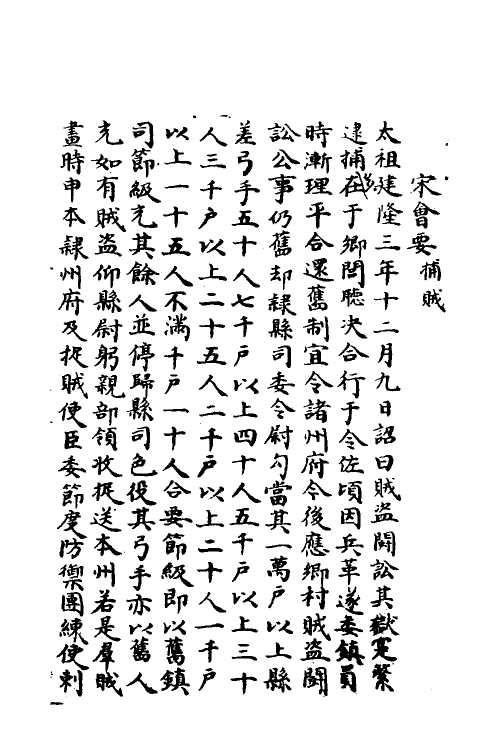 宋會要 捕賊
太祖建隆三年十二月九日詔曰賊盜鬪訟其獄寔繁
逮捕在于鄉閭聽決合行于令佐頃因兵革遂委鎮員
時漸理平合還舊制宜令諸州府今後應鄉村賊盜鬪
訟公事仍舊却隸縣司委令尉勾當其一萬戶以上縣
差弓手五十人七千戶以上四十人五千戶以上三十
人三千戶以上二十五人二千戶以上二十人一千戶
以上一十五人不滿千戶一十人合要節級即以舊鎮
司節級充其餘人並停歸縣司色役其弓手亦以舊人
充如有賊盜仰縣尉躬親部領收捉送本州若是羣賊
畫時申本隸州府及捉賊使臣委節度防禦團練使剌